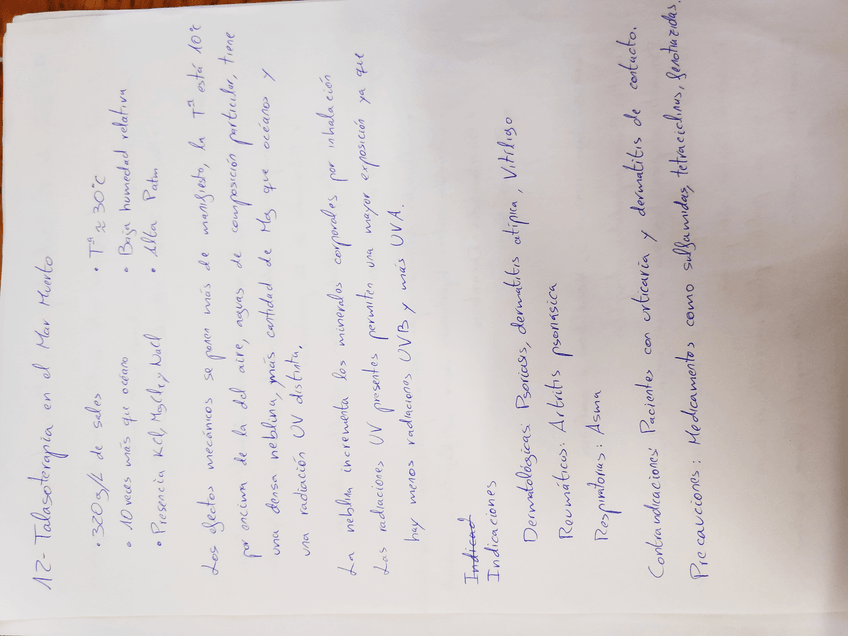 12- Talasoterapia en el Mar Muerto
• 320 g/L de sales
• Tª ≈ 30°C
• 10 veces más que océano
• Baja humedad relativa
• Presencia KCl, MgCl2 y NaCl
• Alta Patm
Los efectos mecánicos se ponen más de manifiesto, la Tª está 10°C
por encima de la del aire, aguas de composición particular, tiene
una densa neblina, más cantidad de Mg que océanos y
una radiación UV distinta.
La neblina incrementa los minerales corporales por inhalación
Las radiaciones UV presentes permiten una mayor exposición ya que
hay menos radiaciones UVB y más UVA.
Indicad
Indicaciones
Dermatológicas Psoriasis, dermatitis atípica, Vitíligo
Reumáticos: Artritis psoriásica
Respiratorias: Asma
Contraindicaciones: Pacientes con urticaria y dermatitis de contacto.
Precauciones: Medicamentos como sulfamidas, tetraciclinas, fenotiazidas.